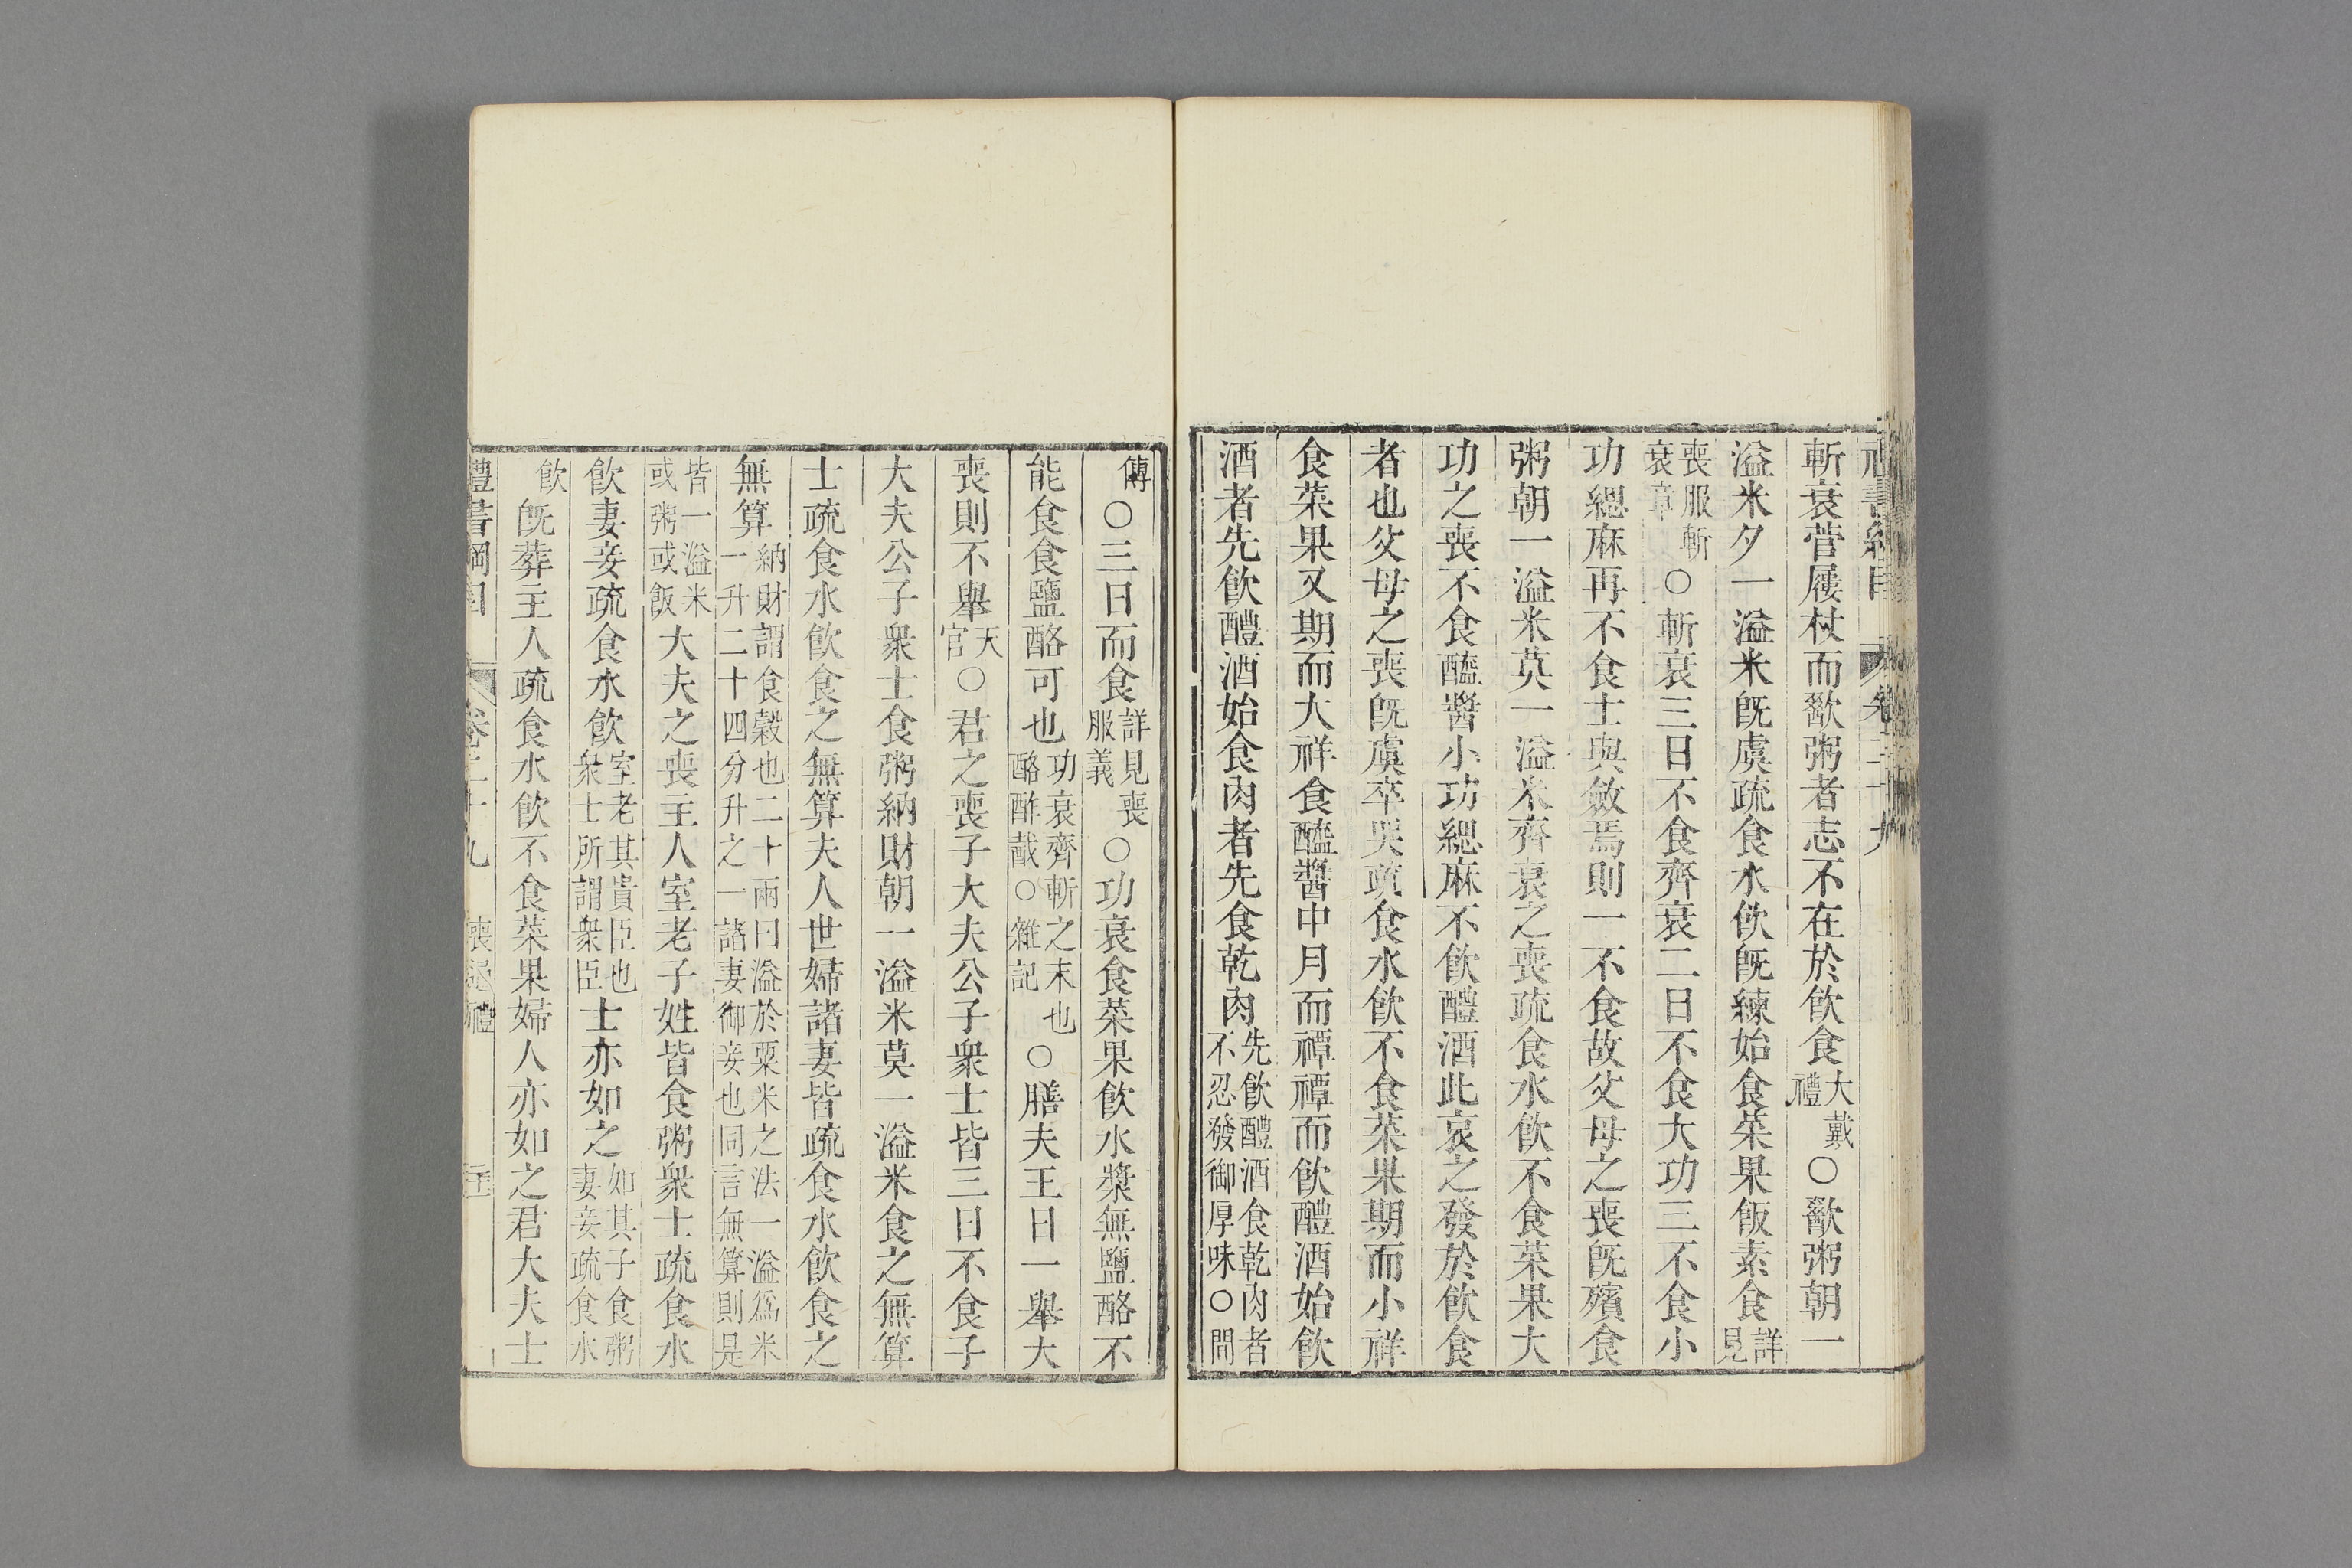 禮書綱目 卷二十九
斬衰菅屨杖而歠粥者志不在於飲食大戴禮○歠粥朝一
溢米夕一溢米旣虞疏食水飲旣練始食菜果飯素食詳見
喪服斬衰章○斬衰三日不食齊衰二日不食大功三不食小
功緦麻再不食士與斂焉則一不食故父母之喪旣殯食
粥朝一溢米莫一溢米齊衰之喪疏食水飲不食菜果大
功之喪不食醯醬小功緦麻不飲醴酒此哀之發於飲食
者也父母之喪旣虞卒哭疏食水飲不食菜果期而小祥
食菜果又期而大祥食醯醬中月而禫禫而飲醴酒始飲
酒者先飲醴酒始食肉者先食乾肉先飲醴酒食乾肉者不忍發御厚味○間
傳○三日而食詳見喪服義○功衰食菜果飲水漿無鹽酪不
能食食鹽酪可也功衰齊斬之末也酪酢截○雜記○膳夫王日一舉大
喪則不舉天官○君之喪子大夫公子衆士皆三日不食子
大夫公子衆士食粥納財朝一溢米莫一溢米食之無算
士疏食水飲食之無算夫人世婦諸妻皆疏食水飲食之
無算納財謂食穀也二十兩曰溢於粟米之法一溢爲米一升二十四分升之一諸妻御妾也同言無算則是
皆一溢米或粥或飯大夫之喪主人室老子姓皆食粥衆士疏食水
飲妻妾疏食水飲室老其貴臣也衆士所謂衆臣士亦如之如其子食粥妻妾疏食水
飲旣葬主人疏食水飲不食菜果婦人亦如之君大夫士
禮書綱目 卷二十九 喪 禮